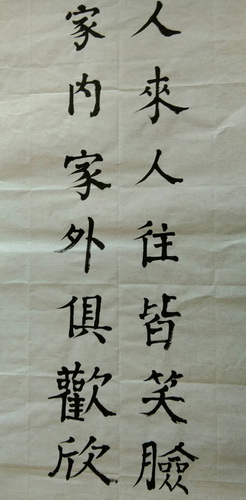 人來人往皆笑臉
家内家外俱歡欣